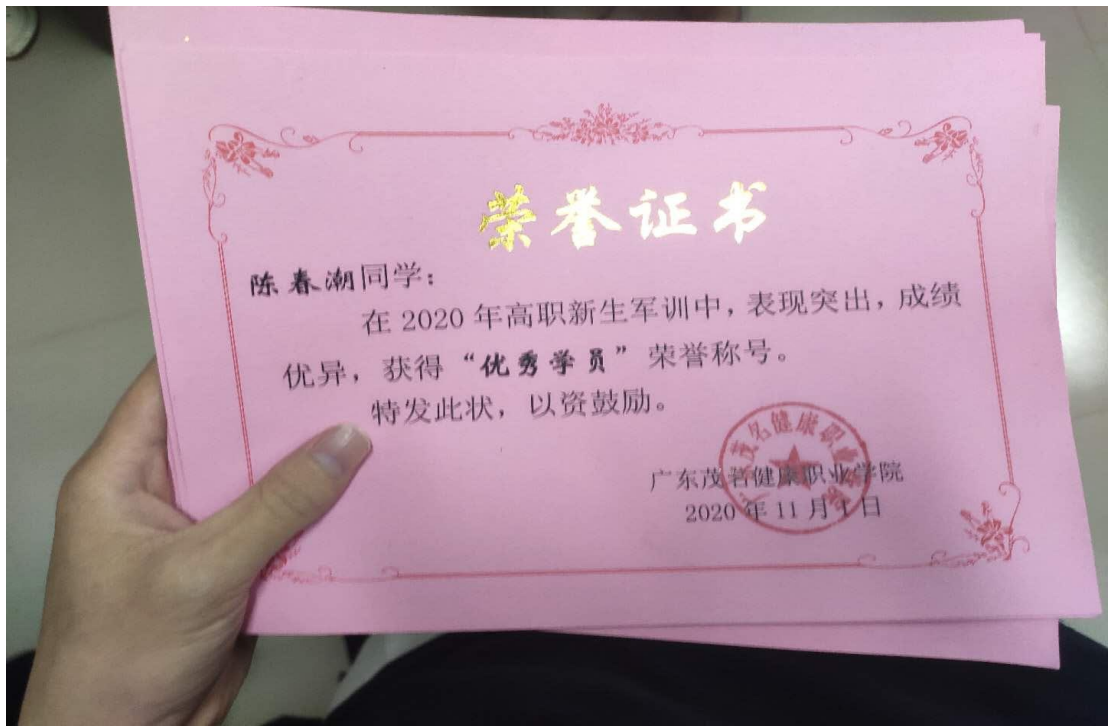 荣誉证书
陈春潮同学：
在 2020 年高职新生军训中，表现突出，成绩
优异，获得“优秀学员”荣誉称号。
特发此状，以资鼓励。
广东茂名健康职业学院
广东茂名健康职业学院
2020 年 11 月 1 日